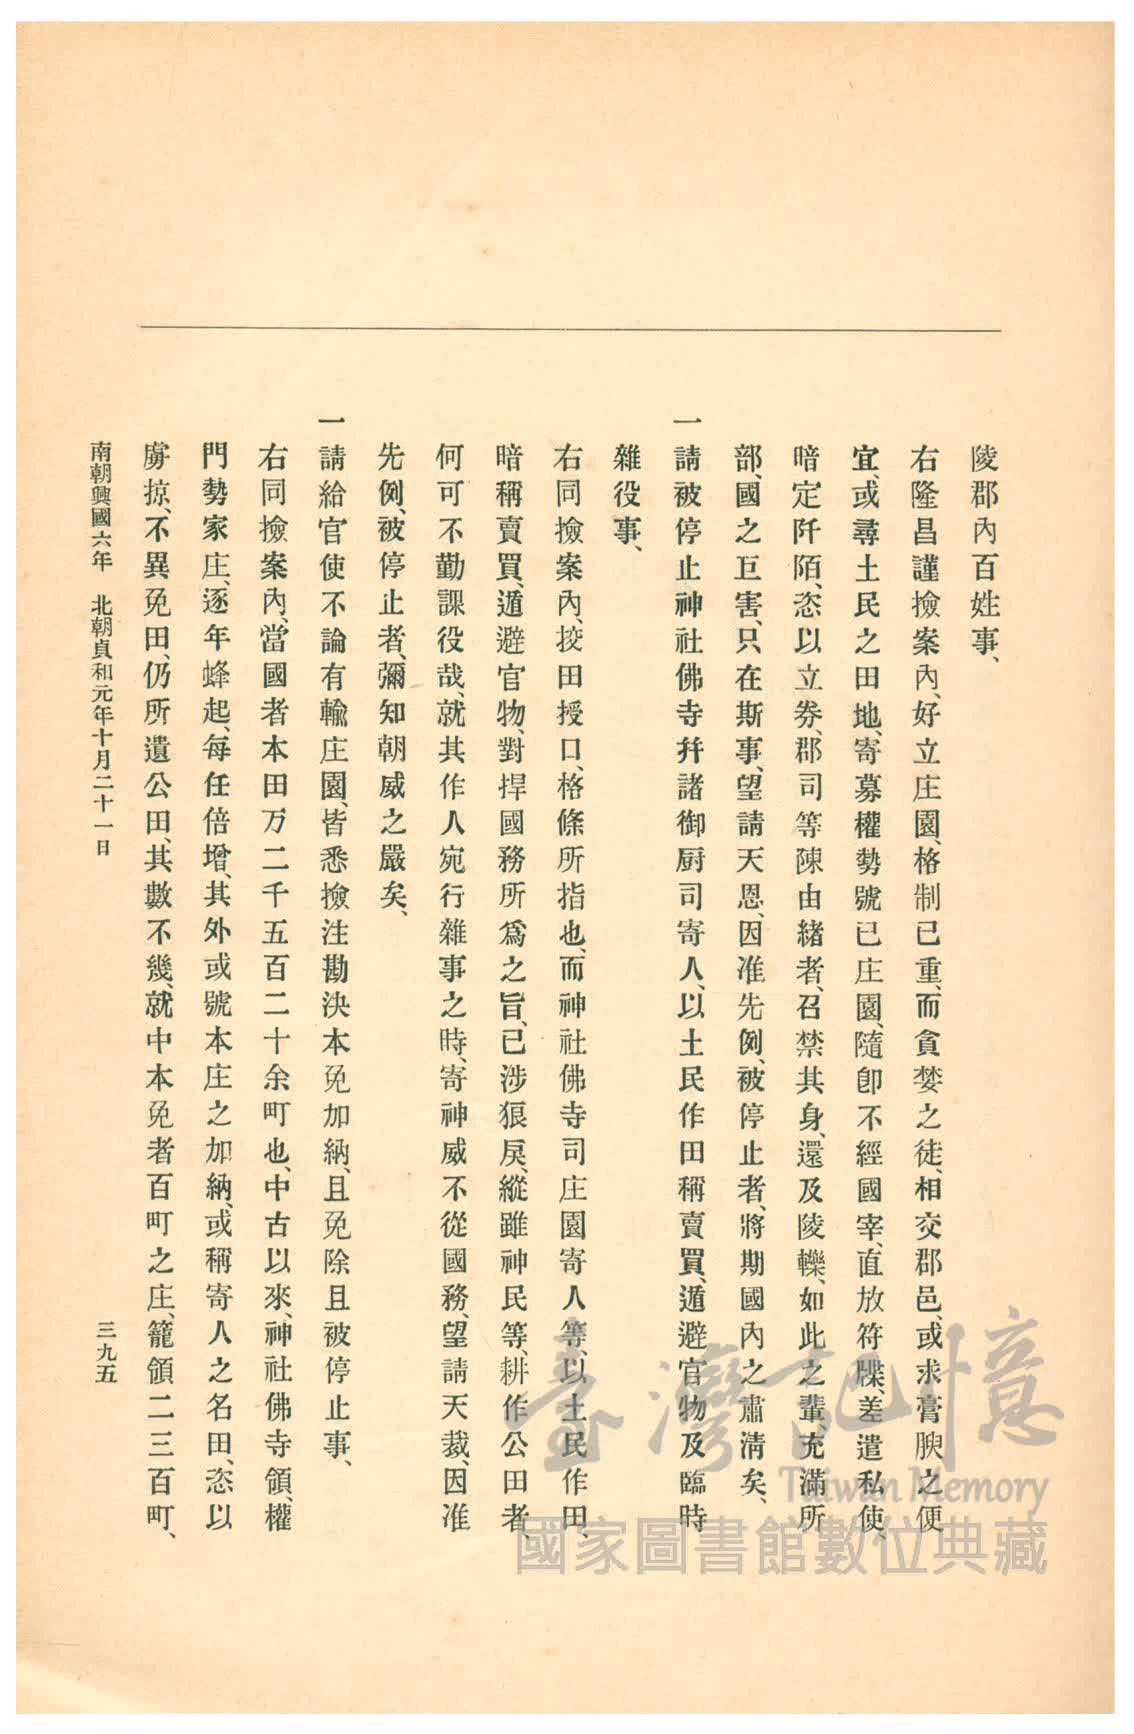 陵郡內百姓事、
右隆昌謹撿案內、好立庄園、格制已重、而貪婪之徒、相交郡邑、或求膏腴之便
宜、或尋土民之田地、寄募權勢號已庄園、隨卽不經國宰、直放符牒、差遣私使、
暗定阡陌、恣以立券、郡司等陳由緖者、召禁其身、還及陵轢、如此之輩、充滿所
部、國之巨害、只在斯事、望請天恩、因准先例、被停止者、將期國內之肅淸矣、
一請被停止神社佛寺幷諸御厨司寄人、以土民作田稱賣買、遁避官物及臨時
雜役事、
右同撿案內、挍田授口、格條所指也、而神社佛寺司庄園寄人等、以土民作田、
暗稱賣買、遁避官物、對捍國務所爲之旨、已涉狠戾、縱雖神民等、耕作公田者、
何可不勤課役哉、就其作人宛行雜事之時、寄神威不從國務、望請天裁、因准
先例、被停止者、彌知朝威之嚴矣、
一請給官使不論有輸庄園、皆悉撿注勘決本免加納、且免除且被停止事、
右同撿案內、當國者本田万二千五百二十余町也、中古以來、神社佛寺領、權
門勢家庄、逐年蜂起、每任倍增、其外或號本庄之加納、或稱寄人之名田、恣以
虜掠、不異免田、仍所遺公田、其數不幾、就中本免者百町之庄、籠領二三百町、
南朝興國六年 北朝貞和元年十月二十一日 三九五
臺灣記憶
Taiwan Memory
國家圖書館數位典藏